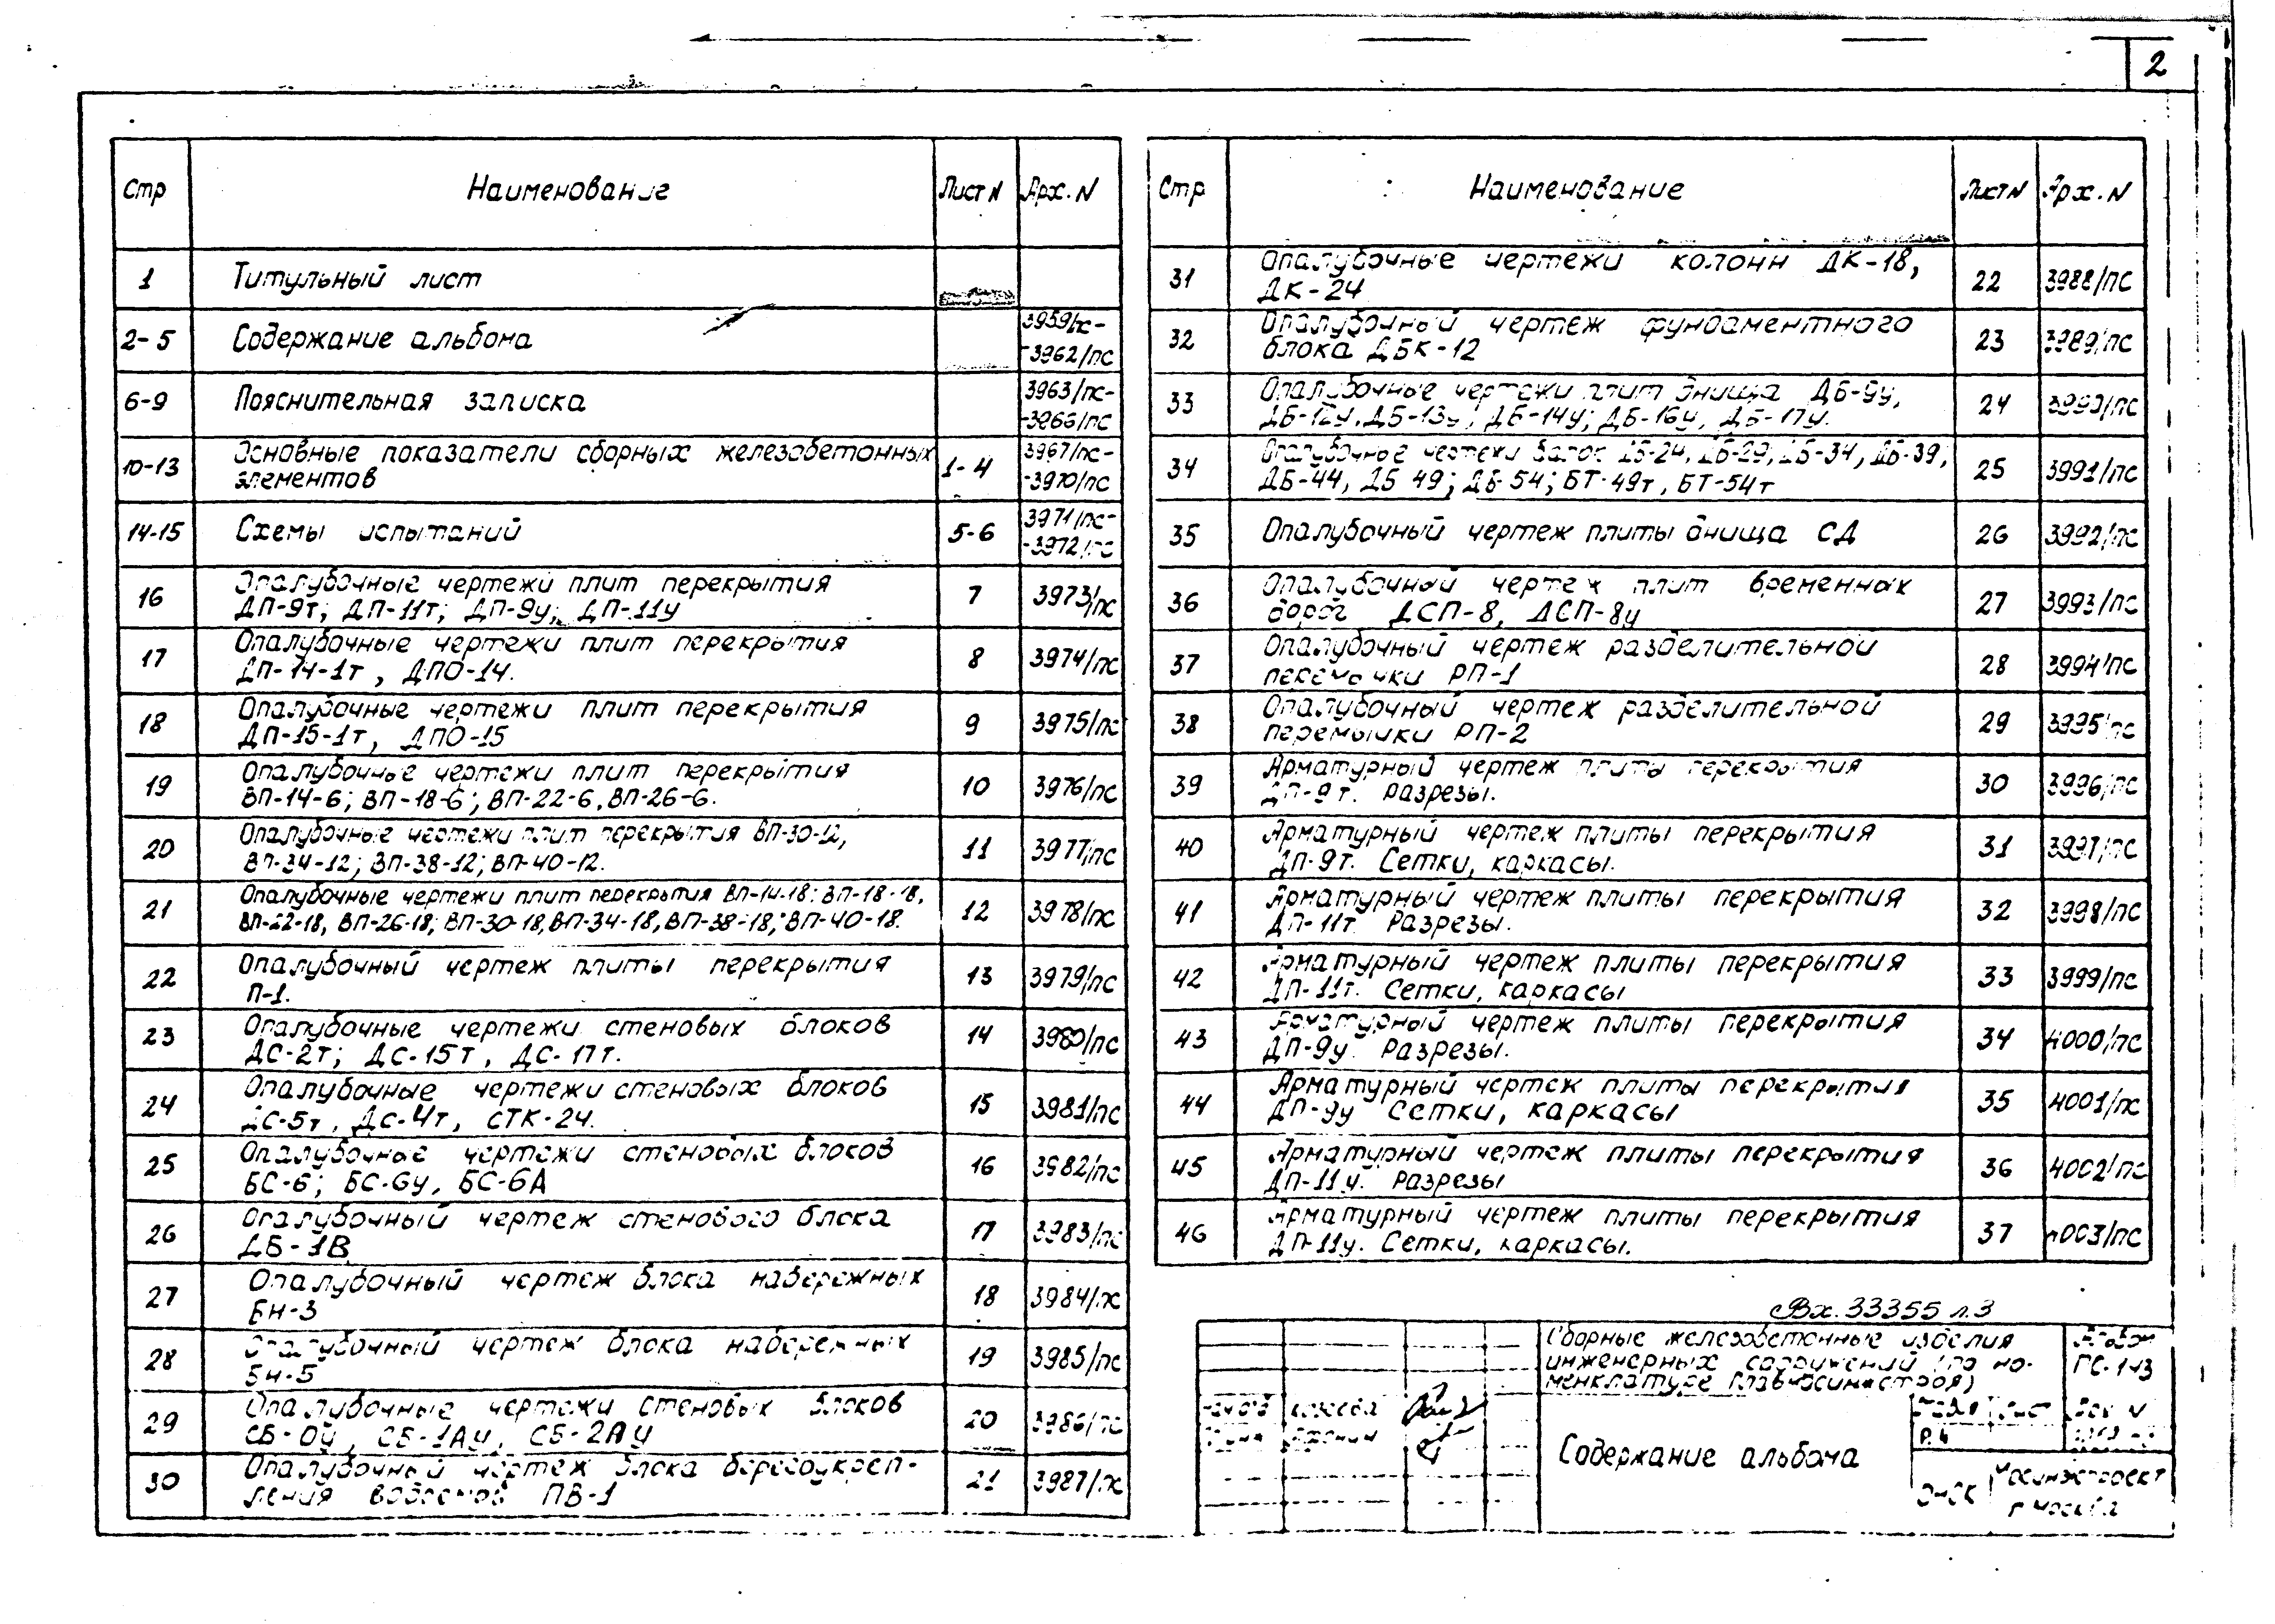 2
Стр Наименование Лист N Арх. N
1 Титульный лист
2-5 Содержание альбома 3959/пс-
-3962/пс
6-9 Пояснительная записка 3963/пс-
-3966/пс
10-13 Основные показатели сборных железобетонных
элементов 1-4 3967/пс-
-3970/пс
14-15 Схемы испытаний 5-6 3971/пс-
-3972/пс
16 Опалубочные чертежи плит перекрытия
ДП-9т; ДП-11т; ДП-9у; ДП-11у 7 3973/пс
17 Опалубочные чертежи плит перекрытия
ДП-14-1т, ДПО-14. 8 3974/пс
18 Опалубочные чертежи плит перекрытия
ДП-15-1т, ДПО-15 9 3975/пс
19 Опалубочные чертежи плит перекрытия
ВП-14-6; ВП-18-6; ВП-22-6, ВП-26-6. 10 3976/пс
20 Опалубочные чертежи плит перекрытия ВП-30-12,
ВП-34-12; ВП-38-12; ВП-40-12. 11 3977/пс
21 Опалубочные чертежи плит перекрытия ВП-14-18; ВП-18-18,
ВП-22-18, ВП-26-18; ВП-30-18, ВП-34-18, ВП-38-18; ВП-40-18. 12 3978/пс
22 Опалубочный чертеж плиты перекрытия
П-1. 13 3979/пс
23 Опалубочные чертежи стеновых блоков
ДС-2т; ДС-15т, ДС-17т. 14 3980/пс
24 Опалубочные чертежи стеновых блоков
ДС-5т, ДС-4т, СТК-24. 15 3981/пс
25 Опалубочные чертежи стеновых блоков
БС-6; БС-6у, БС-6А 16 3982/пс
26 Опалубочный чертеж стенового блока
ДБ-1В 17 3983/пс
27 Опалубочный чертеж блока набережных
БН-3 18 3984/пс
28 Опалубочный чертеж блока набережных
БН-5 19 3985/пс
29 Опалубочные чертежи стеновых блоков
СБ-0у, СБ-1Ау, СБ-2Ау 20 3986/пс
30 Опалубочный чертеж блока берегоукреп-
ления водоемов ПВ-1 21 3987/пс
Стр Наименование Лист N Арх. N
31 Опалубочные чертежи колонн ДК-18,
ДК-24 22 3988/пс
32 Опалубочный чертеж фундаментного
блока ДБК-12 23 3989/пс
33 Опалубочные чертежи плит днища ДБ-9у,
ДБ-12у, ДБ-13у; ДБ-14у; ДБ-16у, ДБ-17у. 24 3990/пс
34 Опалубочные чертежи балок ДБ-24, ДБ-29; ДБ-34, ДБ-39;
ДБ-44, ДБ 49; ДБ-54; БТ-49т, БТ-54т 25 3991/пс
35 Опалубочный чертеж плиты днища СД 26 3992/пс
36 Опалубочный чертеж плит временных
дорог ДСП-8, ДСП-8у 27 3993/пс
37 Опалубочный чертеж разделительной
перемычки РП-1 28 3994/пс
38 Опалубочный чертеж разделительной
перемычки РП-2 29 3995/пс
39 Арматурный чертеж плиты перекрытия
ДП-9т. Разрезы. 30 3996/пс
40 Арматурный чертеж плиты перекрытия
ДП-9т. Сетки, каркасы. 31 3997/пс
41 Арматурный чертеж плиты перекрытия
ДП-11т. Разрезы. 32 3998/пс
42 Арматурный чертеж плиты перекрытия
ДП-11т. Сетки, каркасы 33 3999/пс
43 Арматурный чертеж плиты перекрытия
ДП-9у. Разрезы. 34 4000/пс
44 Арматурный чертеж плиты перекрытия
ДП-9у Сетки, каркасы 35 4001/пс
45 Арматурный чертеж плиты перекрытия
ДП-11у. Разрезы 36 4002/пс
46 Арматурный чертеж плиты перекрытия
ДП-11у. Сетки, каркасы. 37 4003/пс
Вх. 33355 л.3
Сборные железобетонные изделия
инженерных сооружений (по но-
менклатуре Главмосинжстроя)
Альбом
ПС-143
Лист
Содержание альбома
Мосинжпроект
г Москва